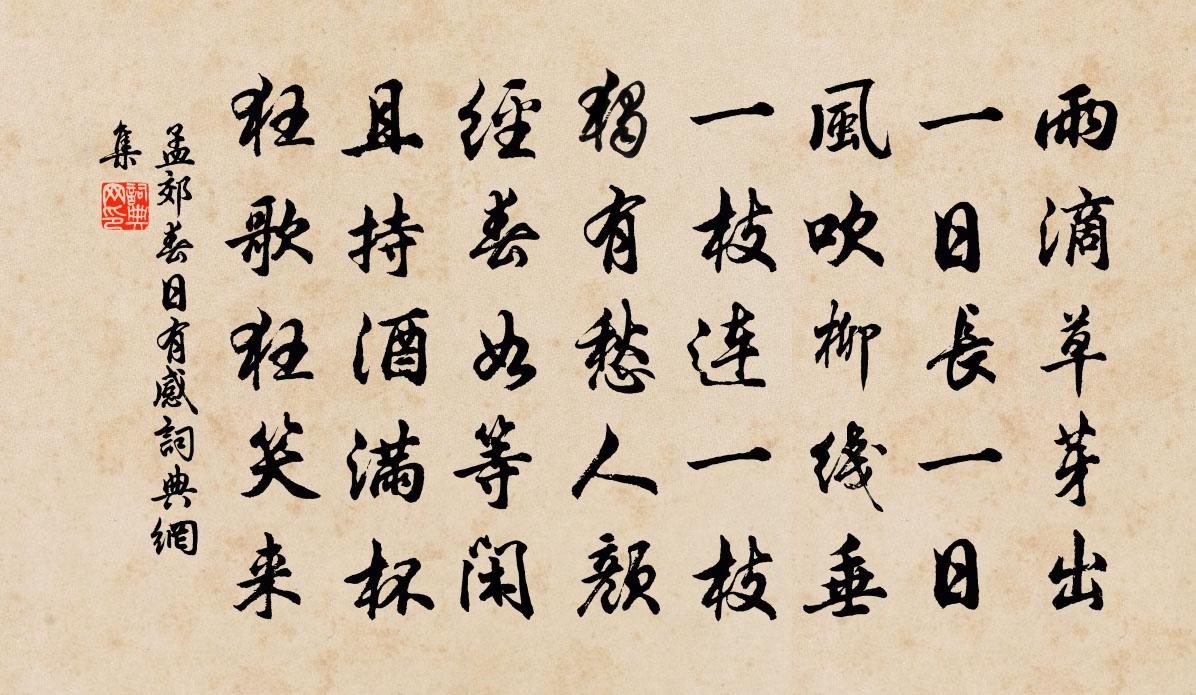 雨滴草芽出
一日長一日
風吹柳綫垂
一枝連一枝
獨有愁人顏
經春如等閑
且持酒滿杯
狂歌狂笑来
孟郊春日有感詞典網
集
詞典
网印